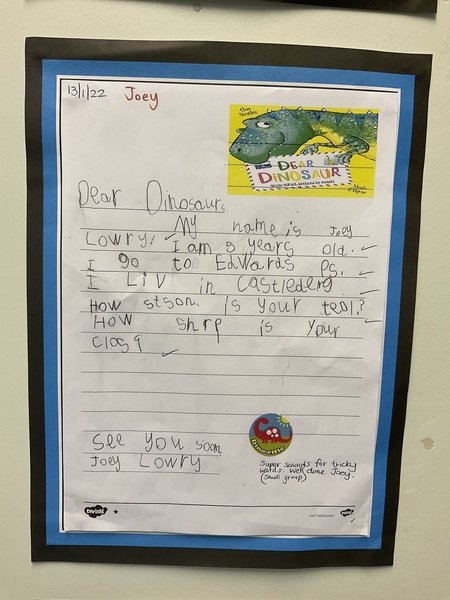 13/1/22 Joey
DEAR
DINOSAUR
Dear Dinosaur,
My name is Joey
Lowry. I am 5 years old.
I go too Edwards Ps.
I Liv in Castlederg
How stson is your teal?
How shrp is your
clos?
See you soon
Joey Lowry
Super sounds for tricky
words. Well done Joey.
(Small group)
twinkl
visit twinkl.com